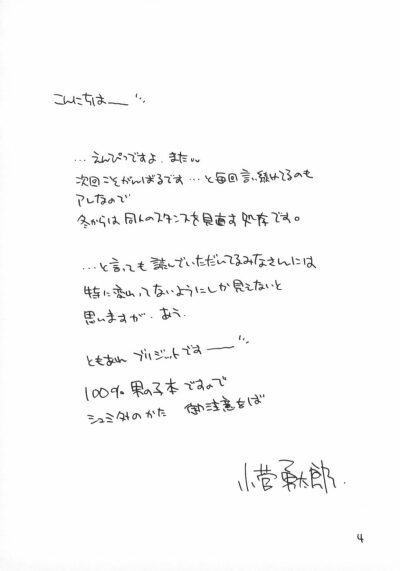 こんにちはー
…えんぴつですよ、また
次回こそがんばるです…と毎回言い続けてるのも
アレなので
冬からは同人のスタンスを見直す処存です。
…と言っても読んでいただいてるみなさんには
特に変わってないようにしか見えないと
思いますが、あう、
ともあれブリジットですー
100%男の子本ですので
シュミ外のかた御注意をば
小菅勇太郎.
4